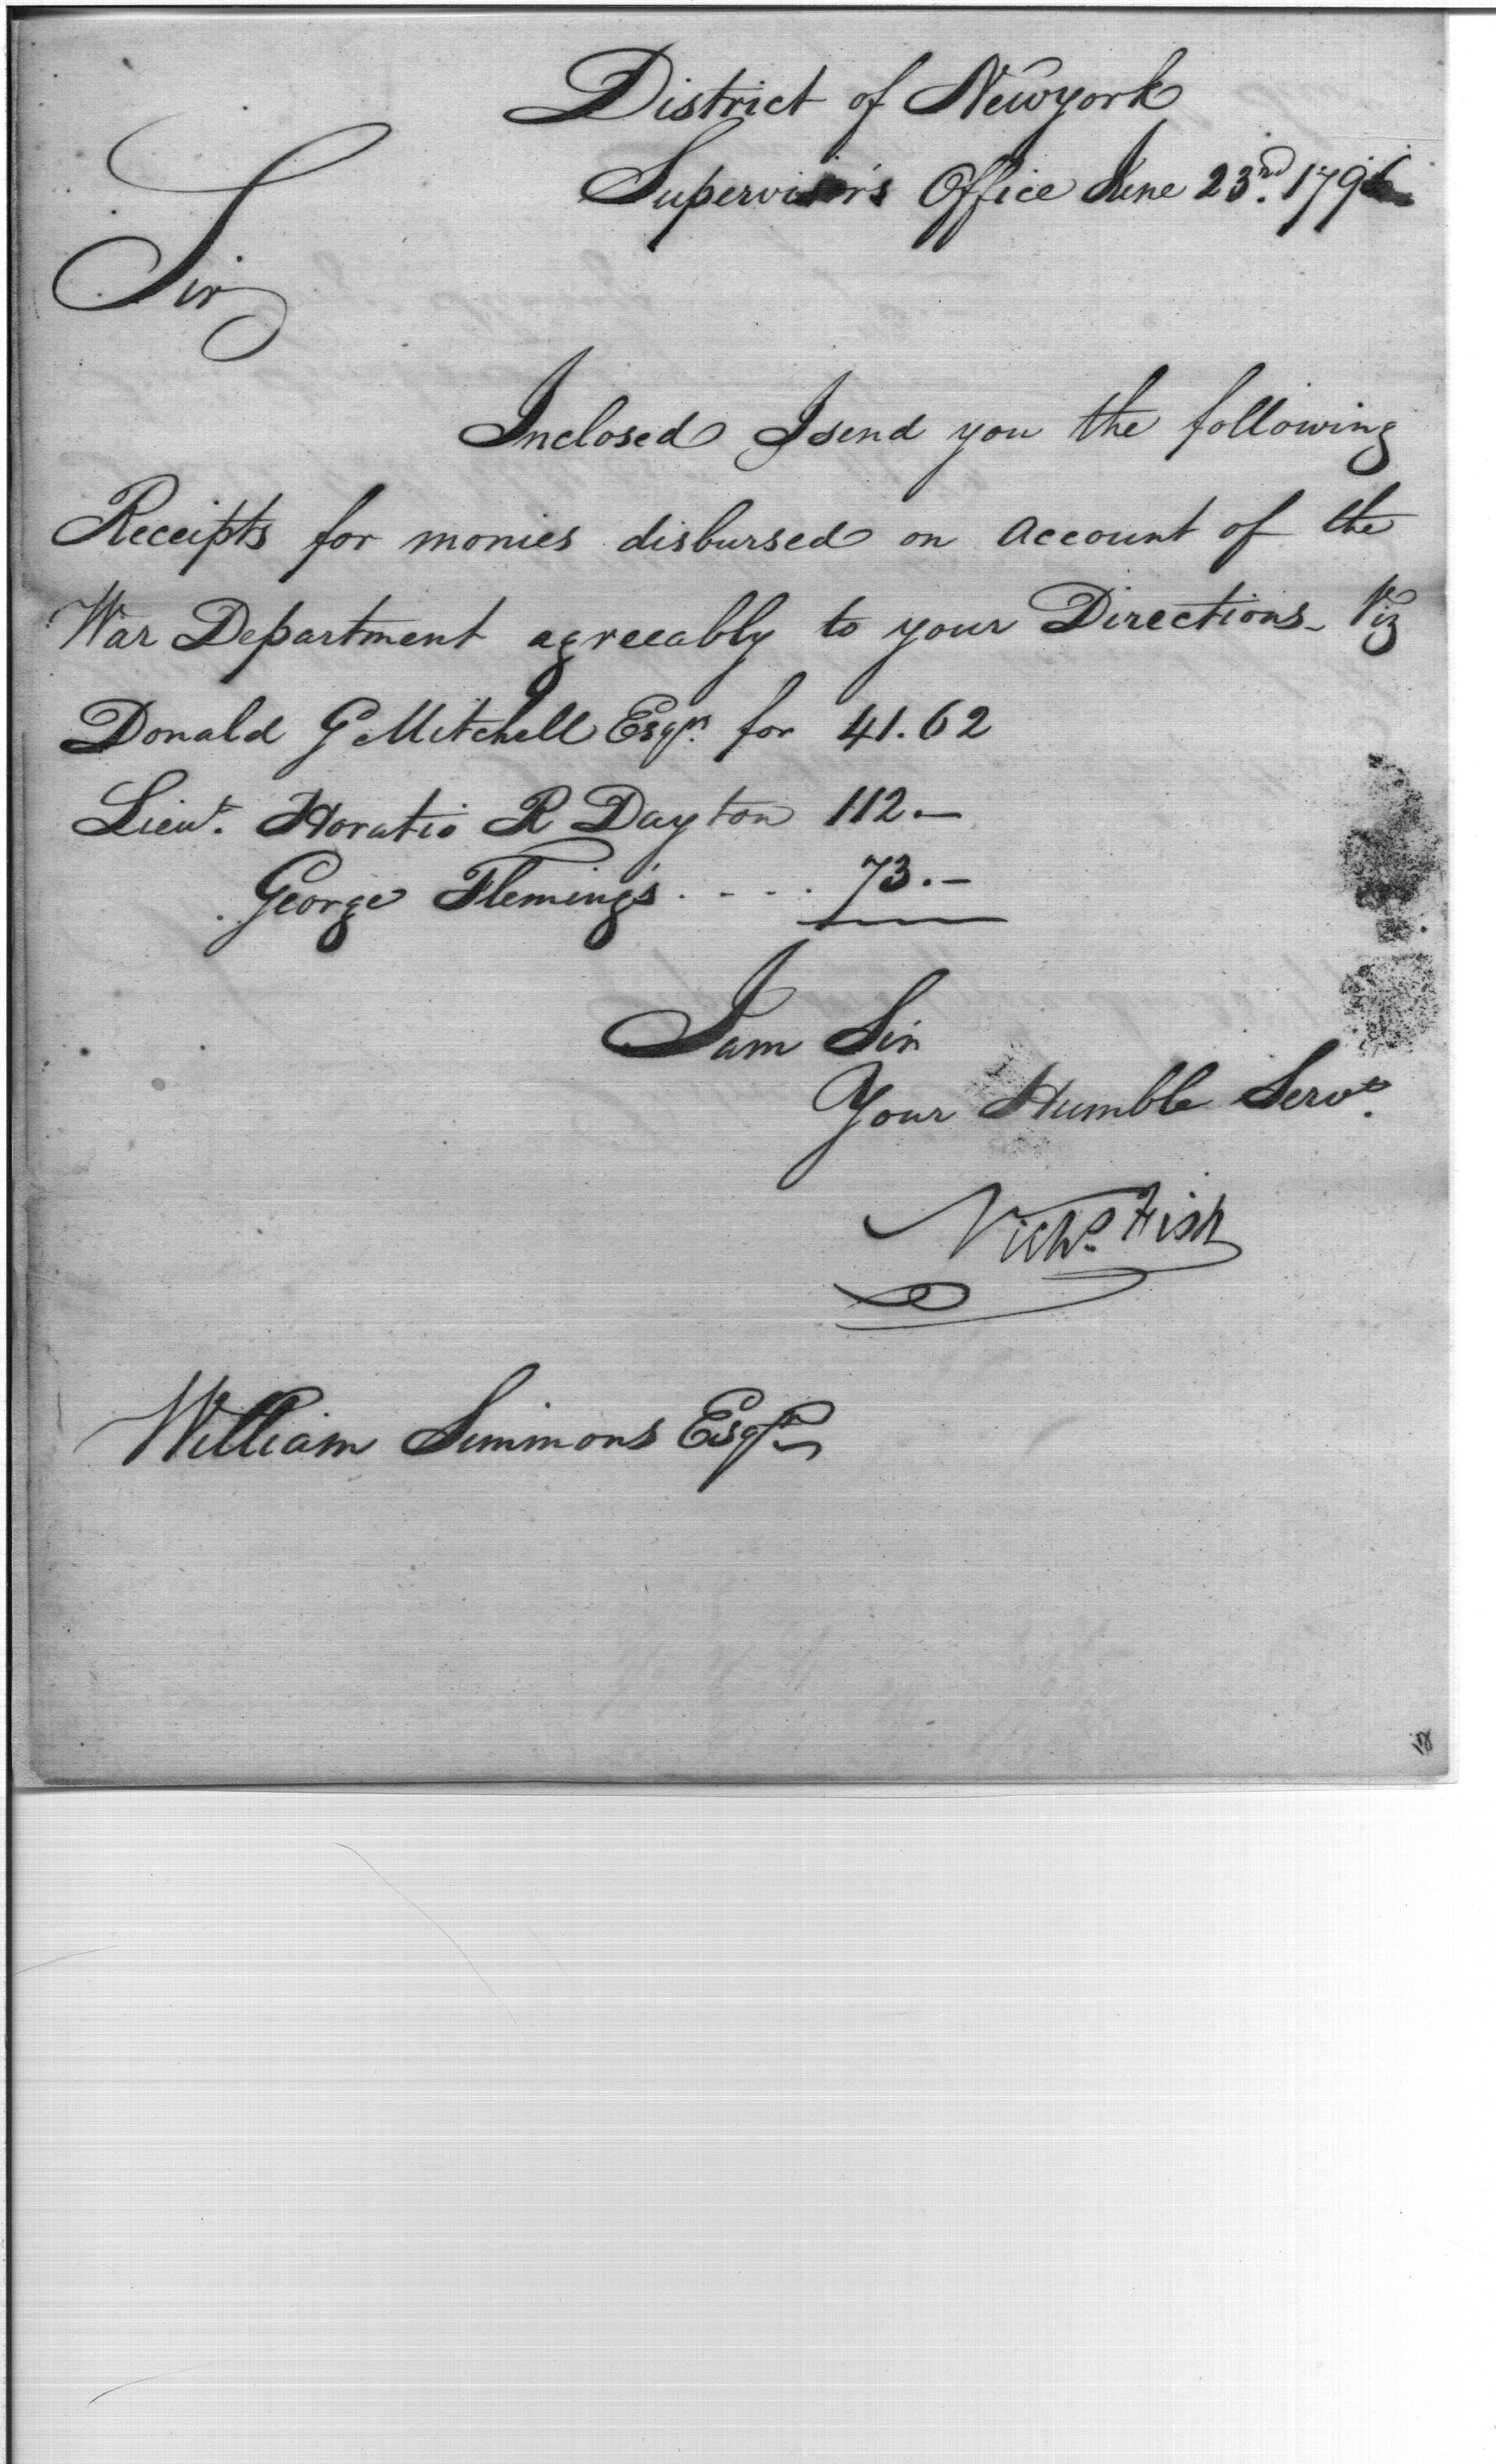 District of Newyork
Supervisor's Office June 23rd. 1796
Sir
Inclosed I send you the following
Receipts for monies disbursed on account of the
War Department agreeably to your Directions - Viz
Donald G Mitchell Esqr. for 41.62
Lieut. Horatio R Dayton 112.—
George Fleming's . - - . 73.—
I am Sir
Your Humble Servt.
Nichs. Fish
William Simmons Esqr.